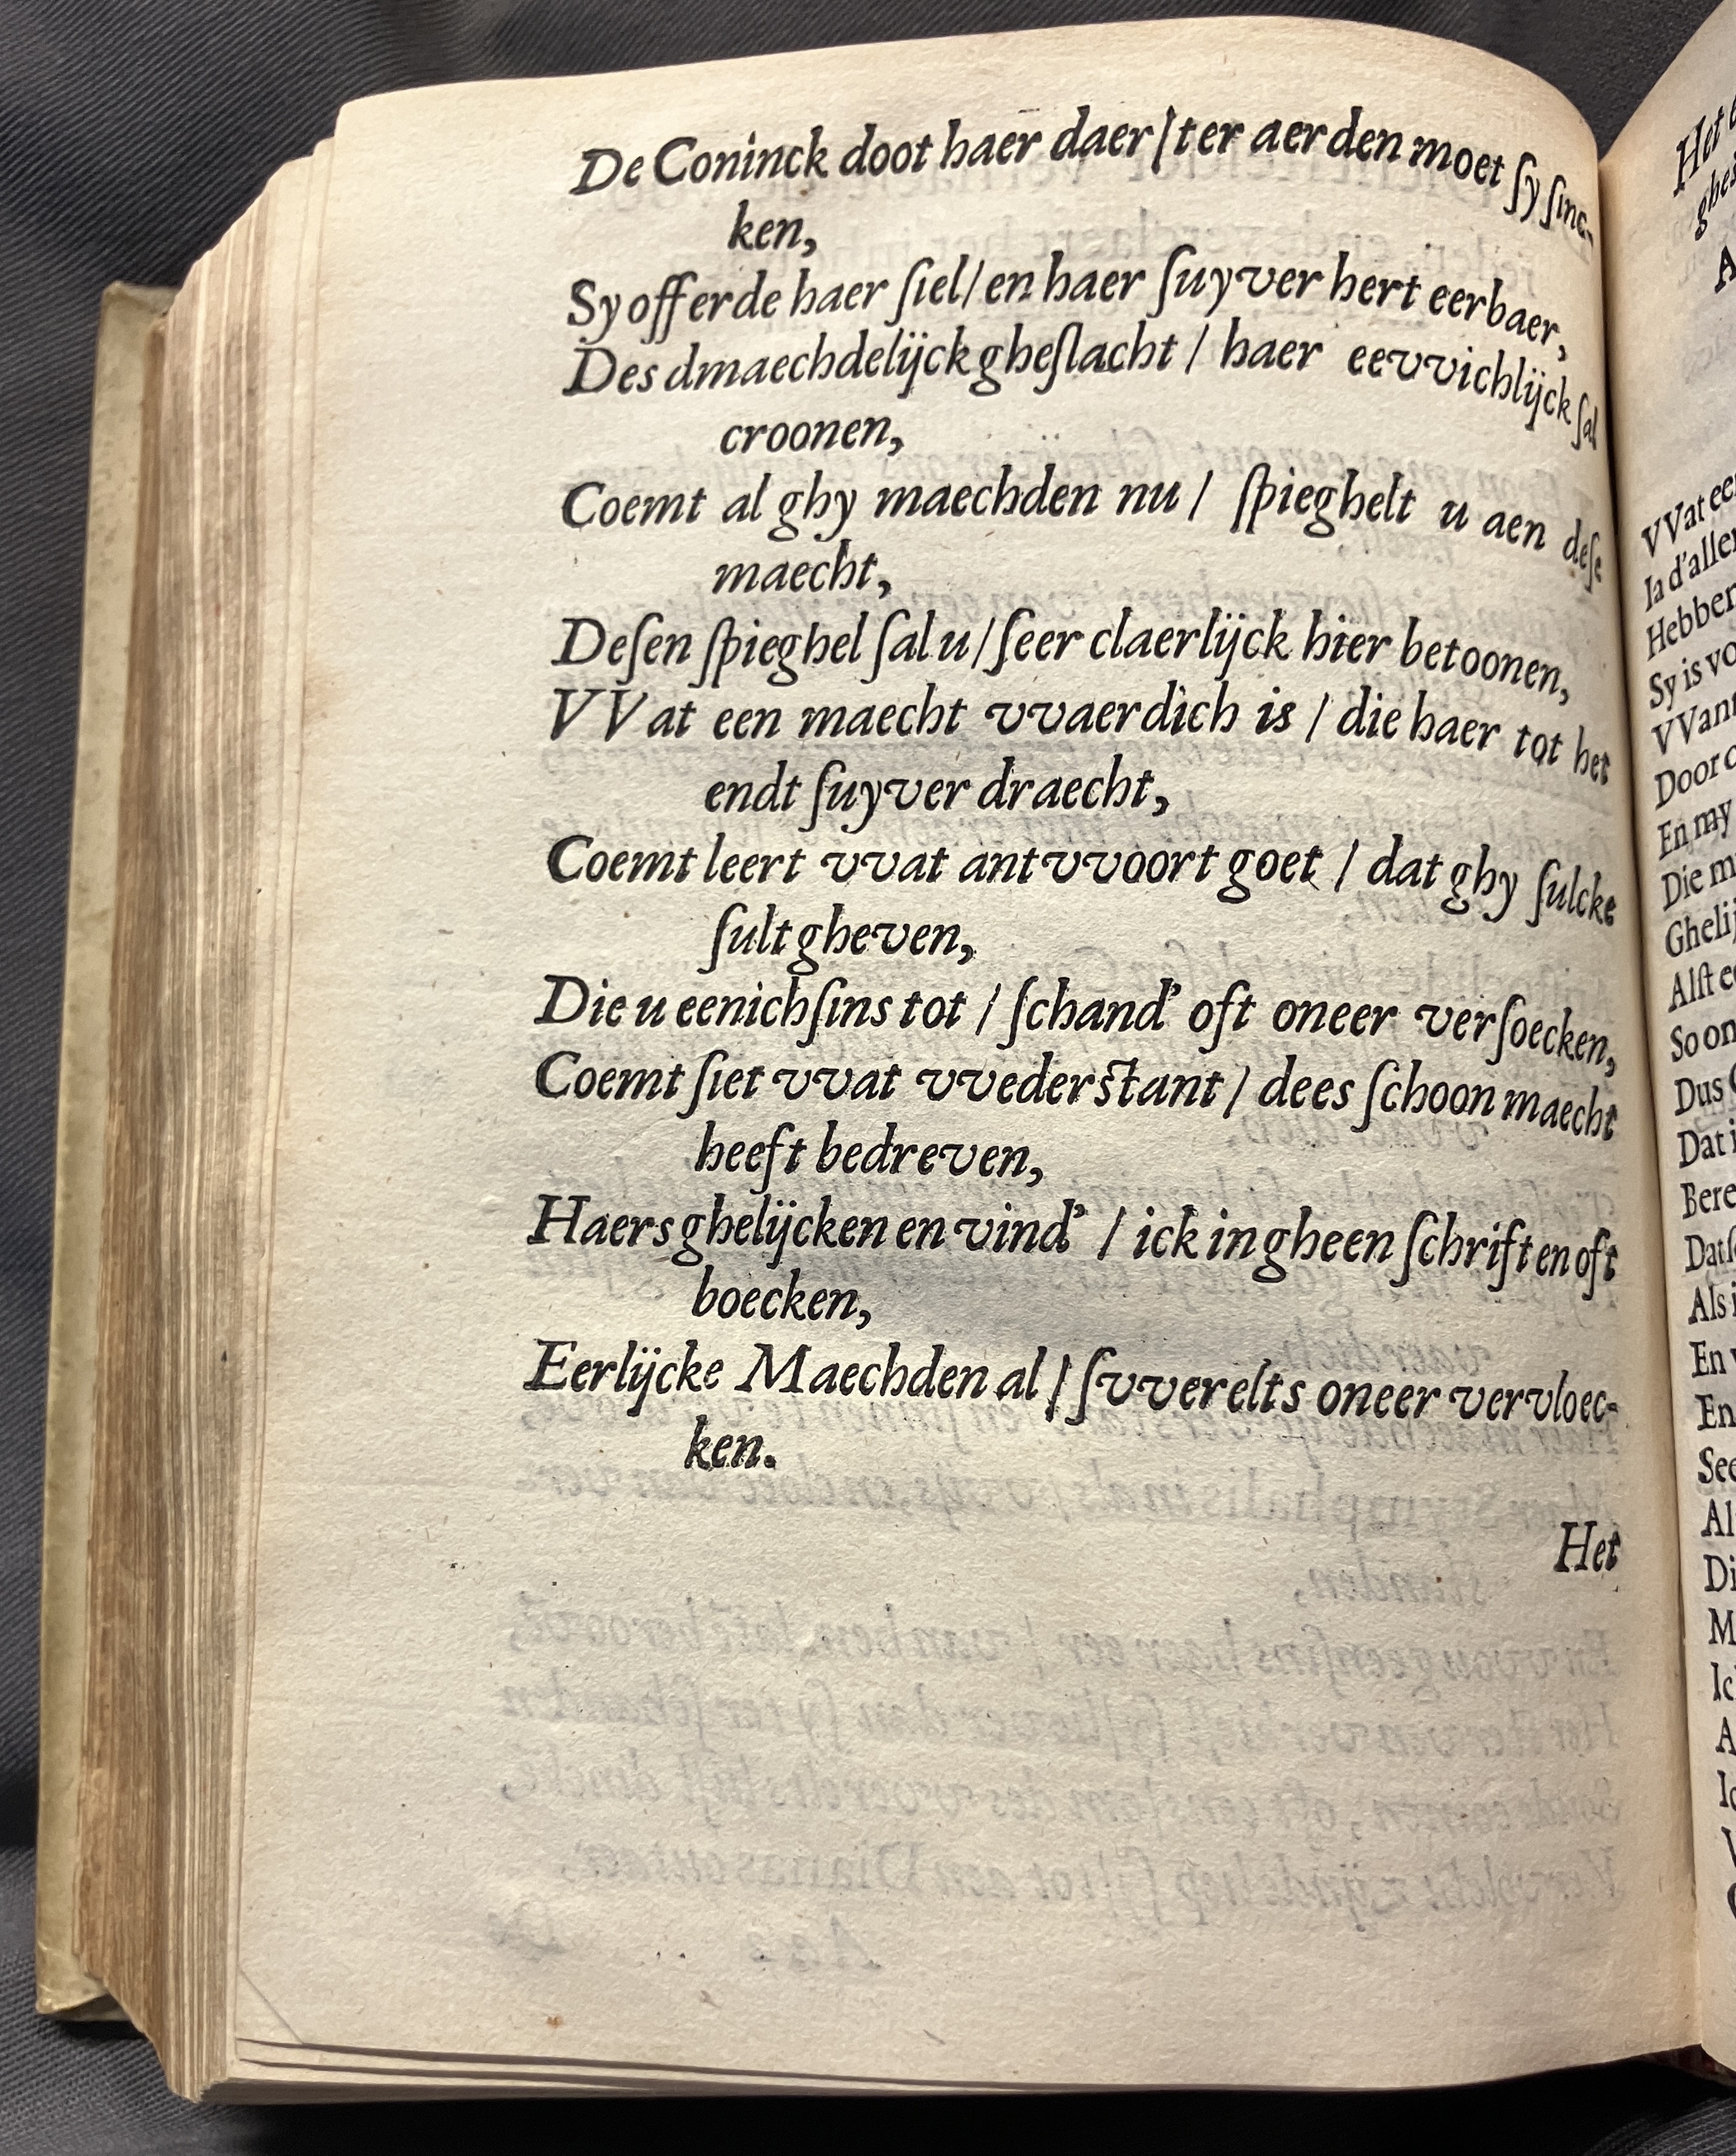 De Coninck doot haer daer/ter aerden moet ſy ſinc-
ken,
Sy offerde haer ſiel/en haer ſuyver hert eerbaer,
Des dmaechdelijck gheſlacht / haer eevvichlijck ſal
croonen,
Coemt al ghy maechden nu / ſpieghelt u aen deſe
maecht,
Deſen ſpieghel ſal u/ſeer claerlijck hier betoonen,
VVat een maecht vvaerdich is / die haer tot het
endt ſuyver draecht,
Coemt leert vvat antvvoort goet / dat ghy ſulcke
ſult gheven,
Die u eenichſins tot / ſchand' oft oneer verſoecken,
Coemt ſiet vvat vvederſtant / dees ſchoon maecht
heeft bedreven,
Haers ghelijcken en vind' / ick in gheen ſchriften oft
boecken,
Eerlijcke Maechden al / ſvverelts oneer vervloec-
ken.
Het
VVat
Ia d'aller
Sy is
Door
En my
Die
So
Dus
Dat
Als
En